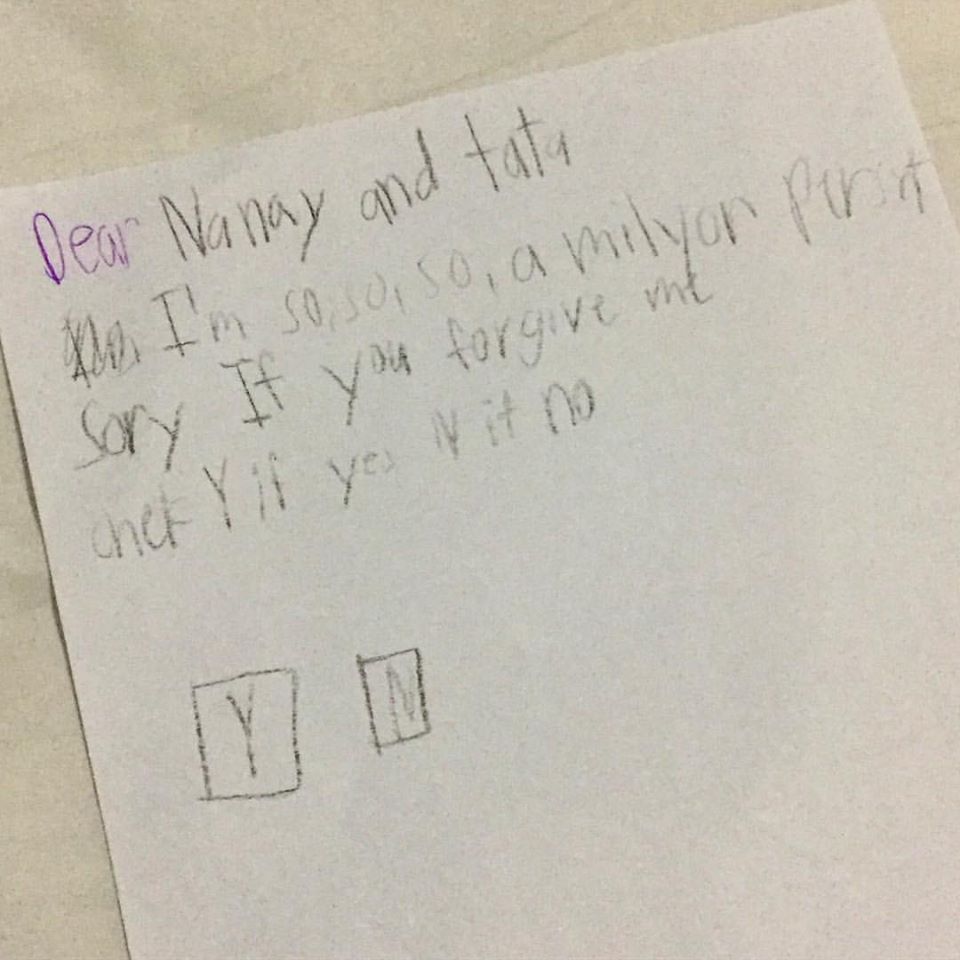 Dear Nanay and tata
I'm so, so, so, a milyon Persint
Sory If you forgive me
chek Y if yes N if no
Y N